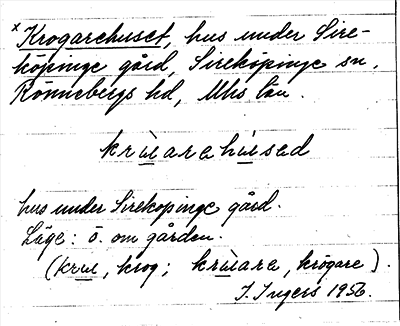 x Krogarehuset, hus under Sire-
köpinge gård, Sireköpinge sn,
Rönnebergs hd, Mhs län.
krùarahùsad
hus under Sireköpinge gård.
Läge: ö. om gården.
(kru, krog; krùara, krögare).
I. Ingers 1956.